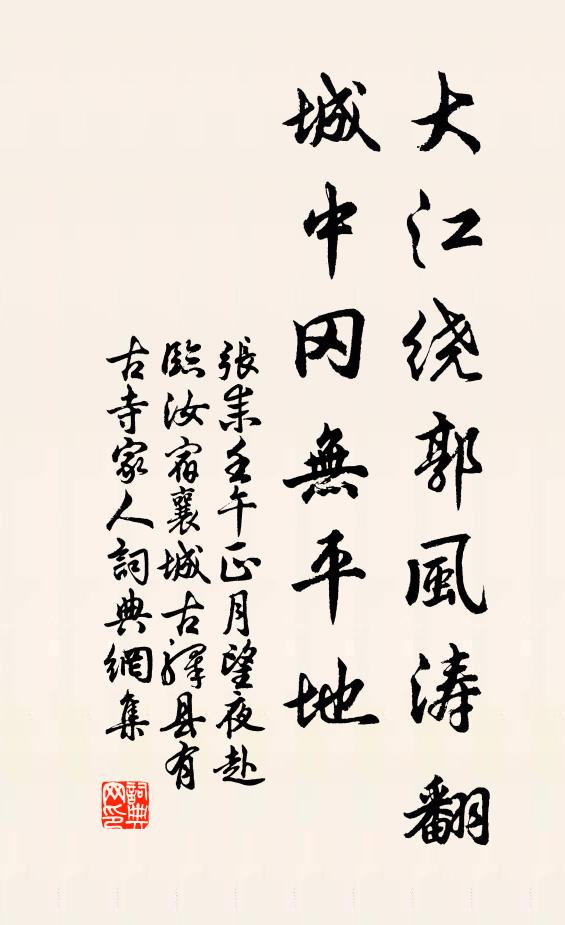 大江绕郭風涛翻
城中冈無平地
張耒壬午正月望夜赴
臨汝宿襄城古驛县有
古寺家人詞典網集
詞典
网印